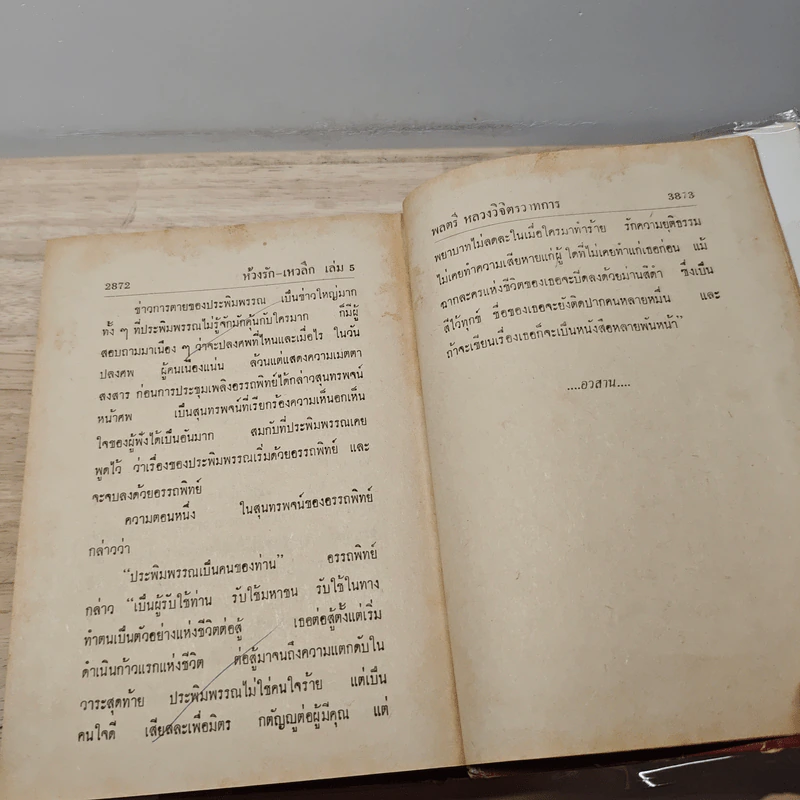 2872 ห้วงรัก-เหวลึก เล่ม 5
ข่าวการตายของประพิมพรรณ เป็นข่าวใหญ่มาก
ทั้ง ๆ ที่ประพิมพรรณไม่รู้จักมักคุ้นกับใครมาก ก็มีผู้
สอบถามมาเนือง ๆ ว่าจะปลงศพที่ไหนและเมื่อไร ในวัน
ปลงศพ ผู้คนเนืองแน่น ล้วนแต่แสดงความเมตตา
สงสาร ก่อนการประชุมเพลิงอรรถพิทย์ได้กล่าวสุนทรพจน์
หน้าศพ เป็นสุนทรพจน์ที่เรียกร้องความเห็นอกเห็น
ใจของผู้ฟังได้เป็นอันมาก สมกับที่ประพิมพรรณเคย
พูดไว้ ว่าเรื่องของประพิมพรรณเริ่มด้วยอรรถพิทย์ และ
จะจบลงด้วยอรรถพิทย์
ความตอนหนึ่ง ในสุนทรพจน์ของอรรถพิทย์
กล่าวว่า
"ประพิมพรรณเป็นคนของท่าน" อรรถพิทย์
กล่าว "เป็นผู้รับใช้ท่าน รับใช้มหาชน รับใช้ในทาง
ทำตนเป็นตัวอย่างแห่งชีวิตต่อสู้ เธอต่อสู้ตั้งแต่เริ่ม
ดำเนินก้าวแรกแห่งชีวิต ต่อสู้มาจนถึงความแตกดับใน
วาระสุดท้าย ประพิมพรรณไม่ใช่คนใจร้าย แต่เป็น
คนใจดี เสียสละเพื่อมิตร กตัญญูต่อผู้มีคุณ แต่
พลตรี หลวงวิจิตรวาทการ 3873
พยาบาทไม่ลดละในเมื่อใครมาทำร้าย รักความยุติธรรม
ไม่เคยทำความเสียหายแก่ผู้ใดที่ไม่เคยทำแก่เธอก่อน แม้
ฉากละครแห่งชีวิตของเธอจะปิดลงด้วยม่านสีดำ ซึ่งเป็น
สีไว้ทุกข์ ชื่อของเธอจะยังติดปากคนหลายหมื่น และ
ถ้าจะเขียนเรื่องเธอก็จะเป็นหนังสือหลายพันหน้า"
....อวสาน....